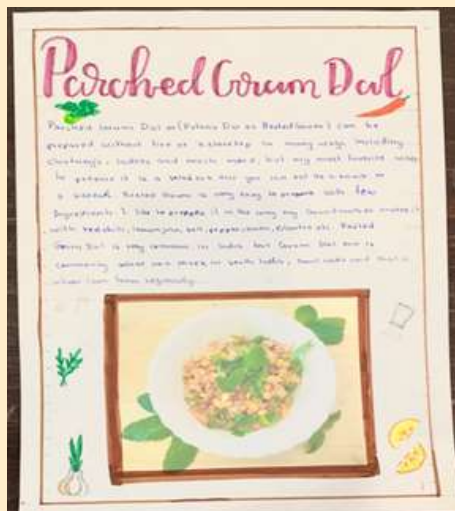 Parched Gram Dal
Parched Gram Dal or (Putana Dal or Roasted Gram) can be
prepared without fire or electricity in many ways including
Chutneys, laddoo and much more, but my most favorite way
to prepare it is a salad
a salad. Roasted Gram is very easy to prepare with few
Ingredients. I like to prepare it in the way my Grandmother makes it
with red chili, lemon juice, salt, pepper, onion, Cilantro etc. Roasted
Gram Dal is very common in India, but Gram Dal
commonly in South India, Tamil Nadu and that is
where I am from